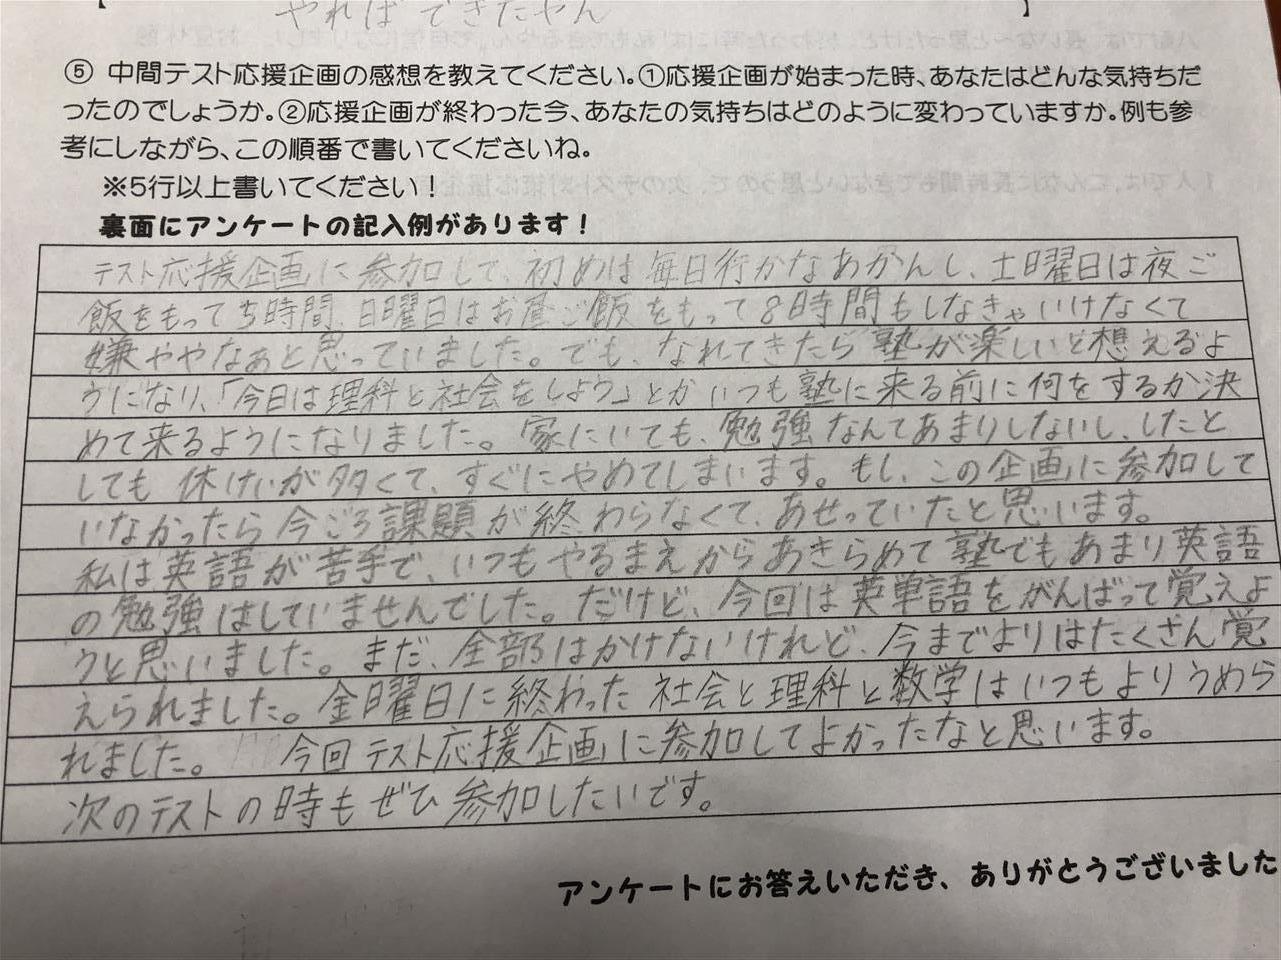 やればできたやん 】
⑤ 中間テスト応援企画の感想を教えてください。①応援企画が始まった時、あなたはどんな気持ちだ
ったのでしょうか。②応援企画が終わった今、あなたの気持ちはどのように変わっていますか。例も参
考にしながら、この順番で書いてくださいね。
※5行以上書いてください！
裏面にアンケートの記入例があります！
テスト応援企画に参加して、初めは毎日行かなあかんし、土曜日は夜ご
飯をもって5時間、日曜日はお昼ご飯をもって8時間もしなきゃいけなくて
嫌ややなぁと思っていました。でも、なれてきたら塾が楽しいと想えるよ
うになり、「今日は理科と社会をしよう」とかいつも塾に来る前に何をするか決
めて来るようになりました。家にいても、勉強なんてあまりしないし、したと
しても休けいが多くて、すぐにやめてしまいます。もし、この企画に参加して
いなかったら今ごろ課題が終わらなくて、あせっていたと思います。
私は英語が苦手で、いつもやるまえからあきらめて塾でもあまり英語
の勉強はしていませんでした。だけど、今回は英単語をがんばって覚えよ
うと思いました。まだ、全部はかけないけれど、今までよりはたくさん覚
えられました。金曜日に終わった社会と理科と数学はいつもよりうめら
れました。 今回テスト応援企画に参加してよかったなと思います。
次のテストの時もぜひ参加したいです。
アンケートにお答えいただき、ありがとうございました